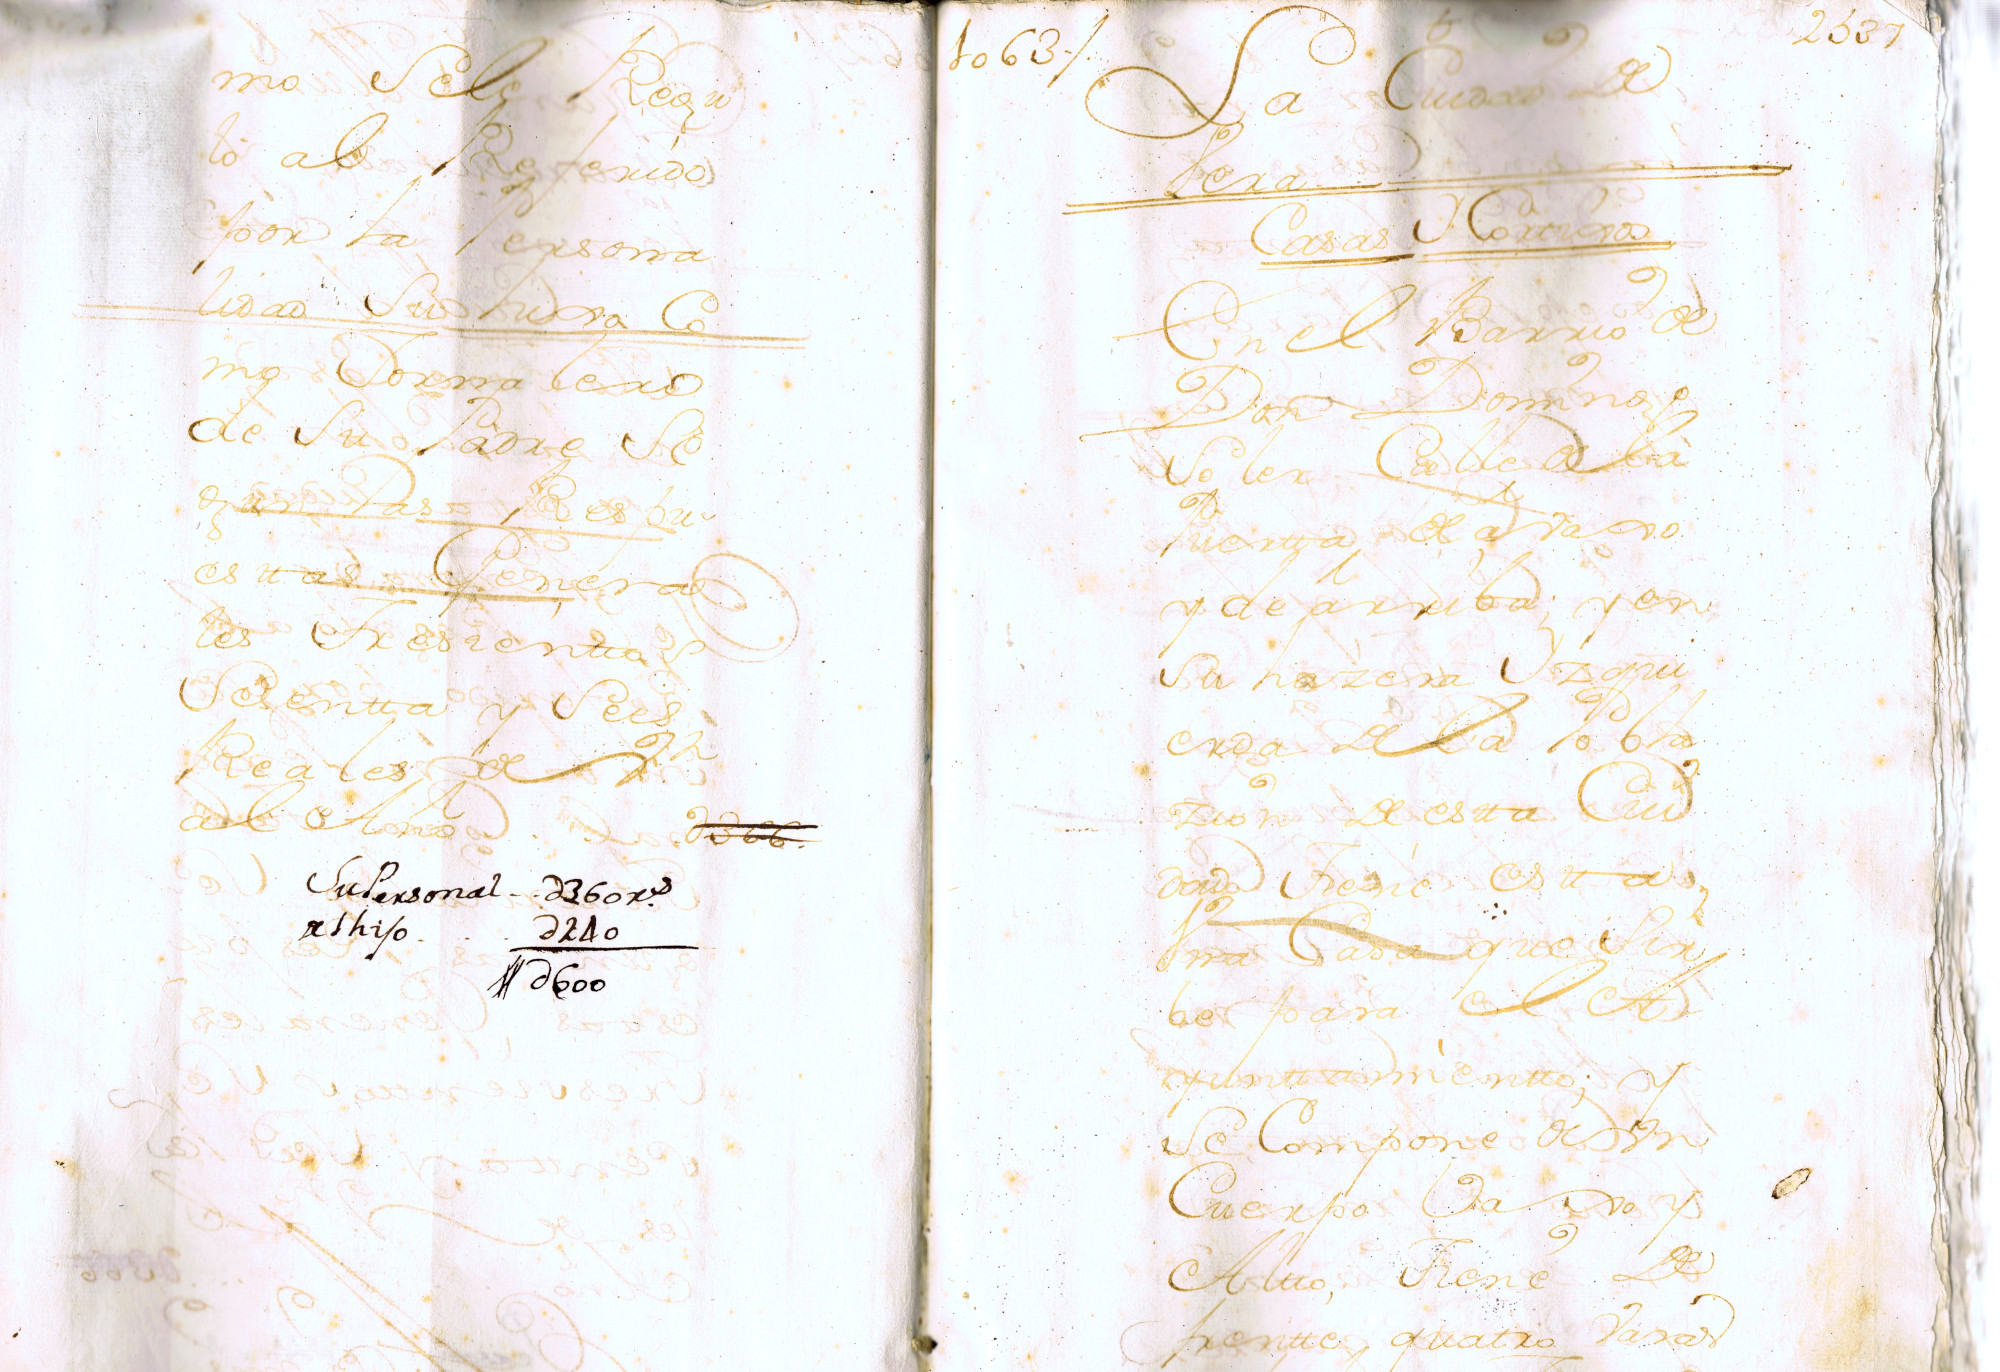 mo Sele Regu
ló al Referido
por la Persona
lidad Su hidra Co
mo Jornalero
de Su Padre Se
gun las Respu-
esttas Genera
les Treszientos
Sesentta y Seis
Reales de Vn
al Año . . d366.
Su Personal - - d360 rs.
al hijo . . . d240
d600
1063./ 2537
La Ciudad de
Vera
Casas Y Cortijos
En el Barrio de
Don Domingo
Soler Calle de la
Puertta de avaxo
y de arriba; y en
Su hazera Yzqui
erda de la Pobla
zion de estta Ciu
dad Tiene estta
Vna Casa que Sir
be para el A
yunttamientto; y
Se Compone de Vn
Cuerpo Baxo y
Altto, Tiene de
frentte quatro Varas